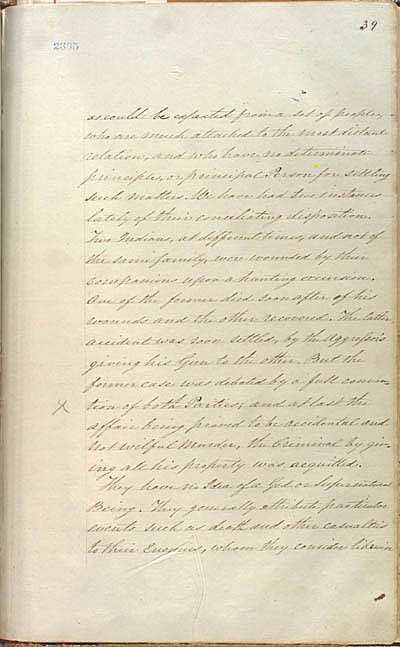 39
2335
as could be expected from a set of people,
who are much attached to the most distant
relation, and who have no determinate
principle, or principal Person for settling
such matters. We have had two instances
lately of their conciliating disposition.
Two Indians, at different times, and not of
the same family, were wounded by their
companions upon a hunting excursion.
One of the former died soon after of his
wounds and the other recovered. The latter
accident was soon settled, by the Aggressor's
giving his Gun to the other. But the
former case was debated by a full conven-
tion of both Parties; and at last the
affair being proved to be accidental and
not wilful Murder, the Criminal by giv-
ing all his property was acquitted.
They have no Idea of a God or Supernatural
Being. They generally attribute particular
events such as death and other casualties
to their Enemies, whom they consider likewise